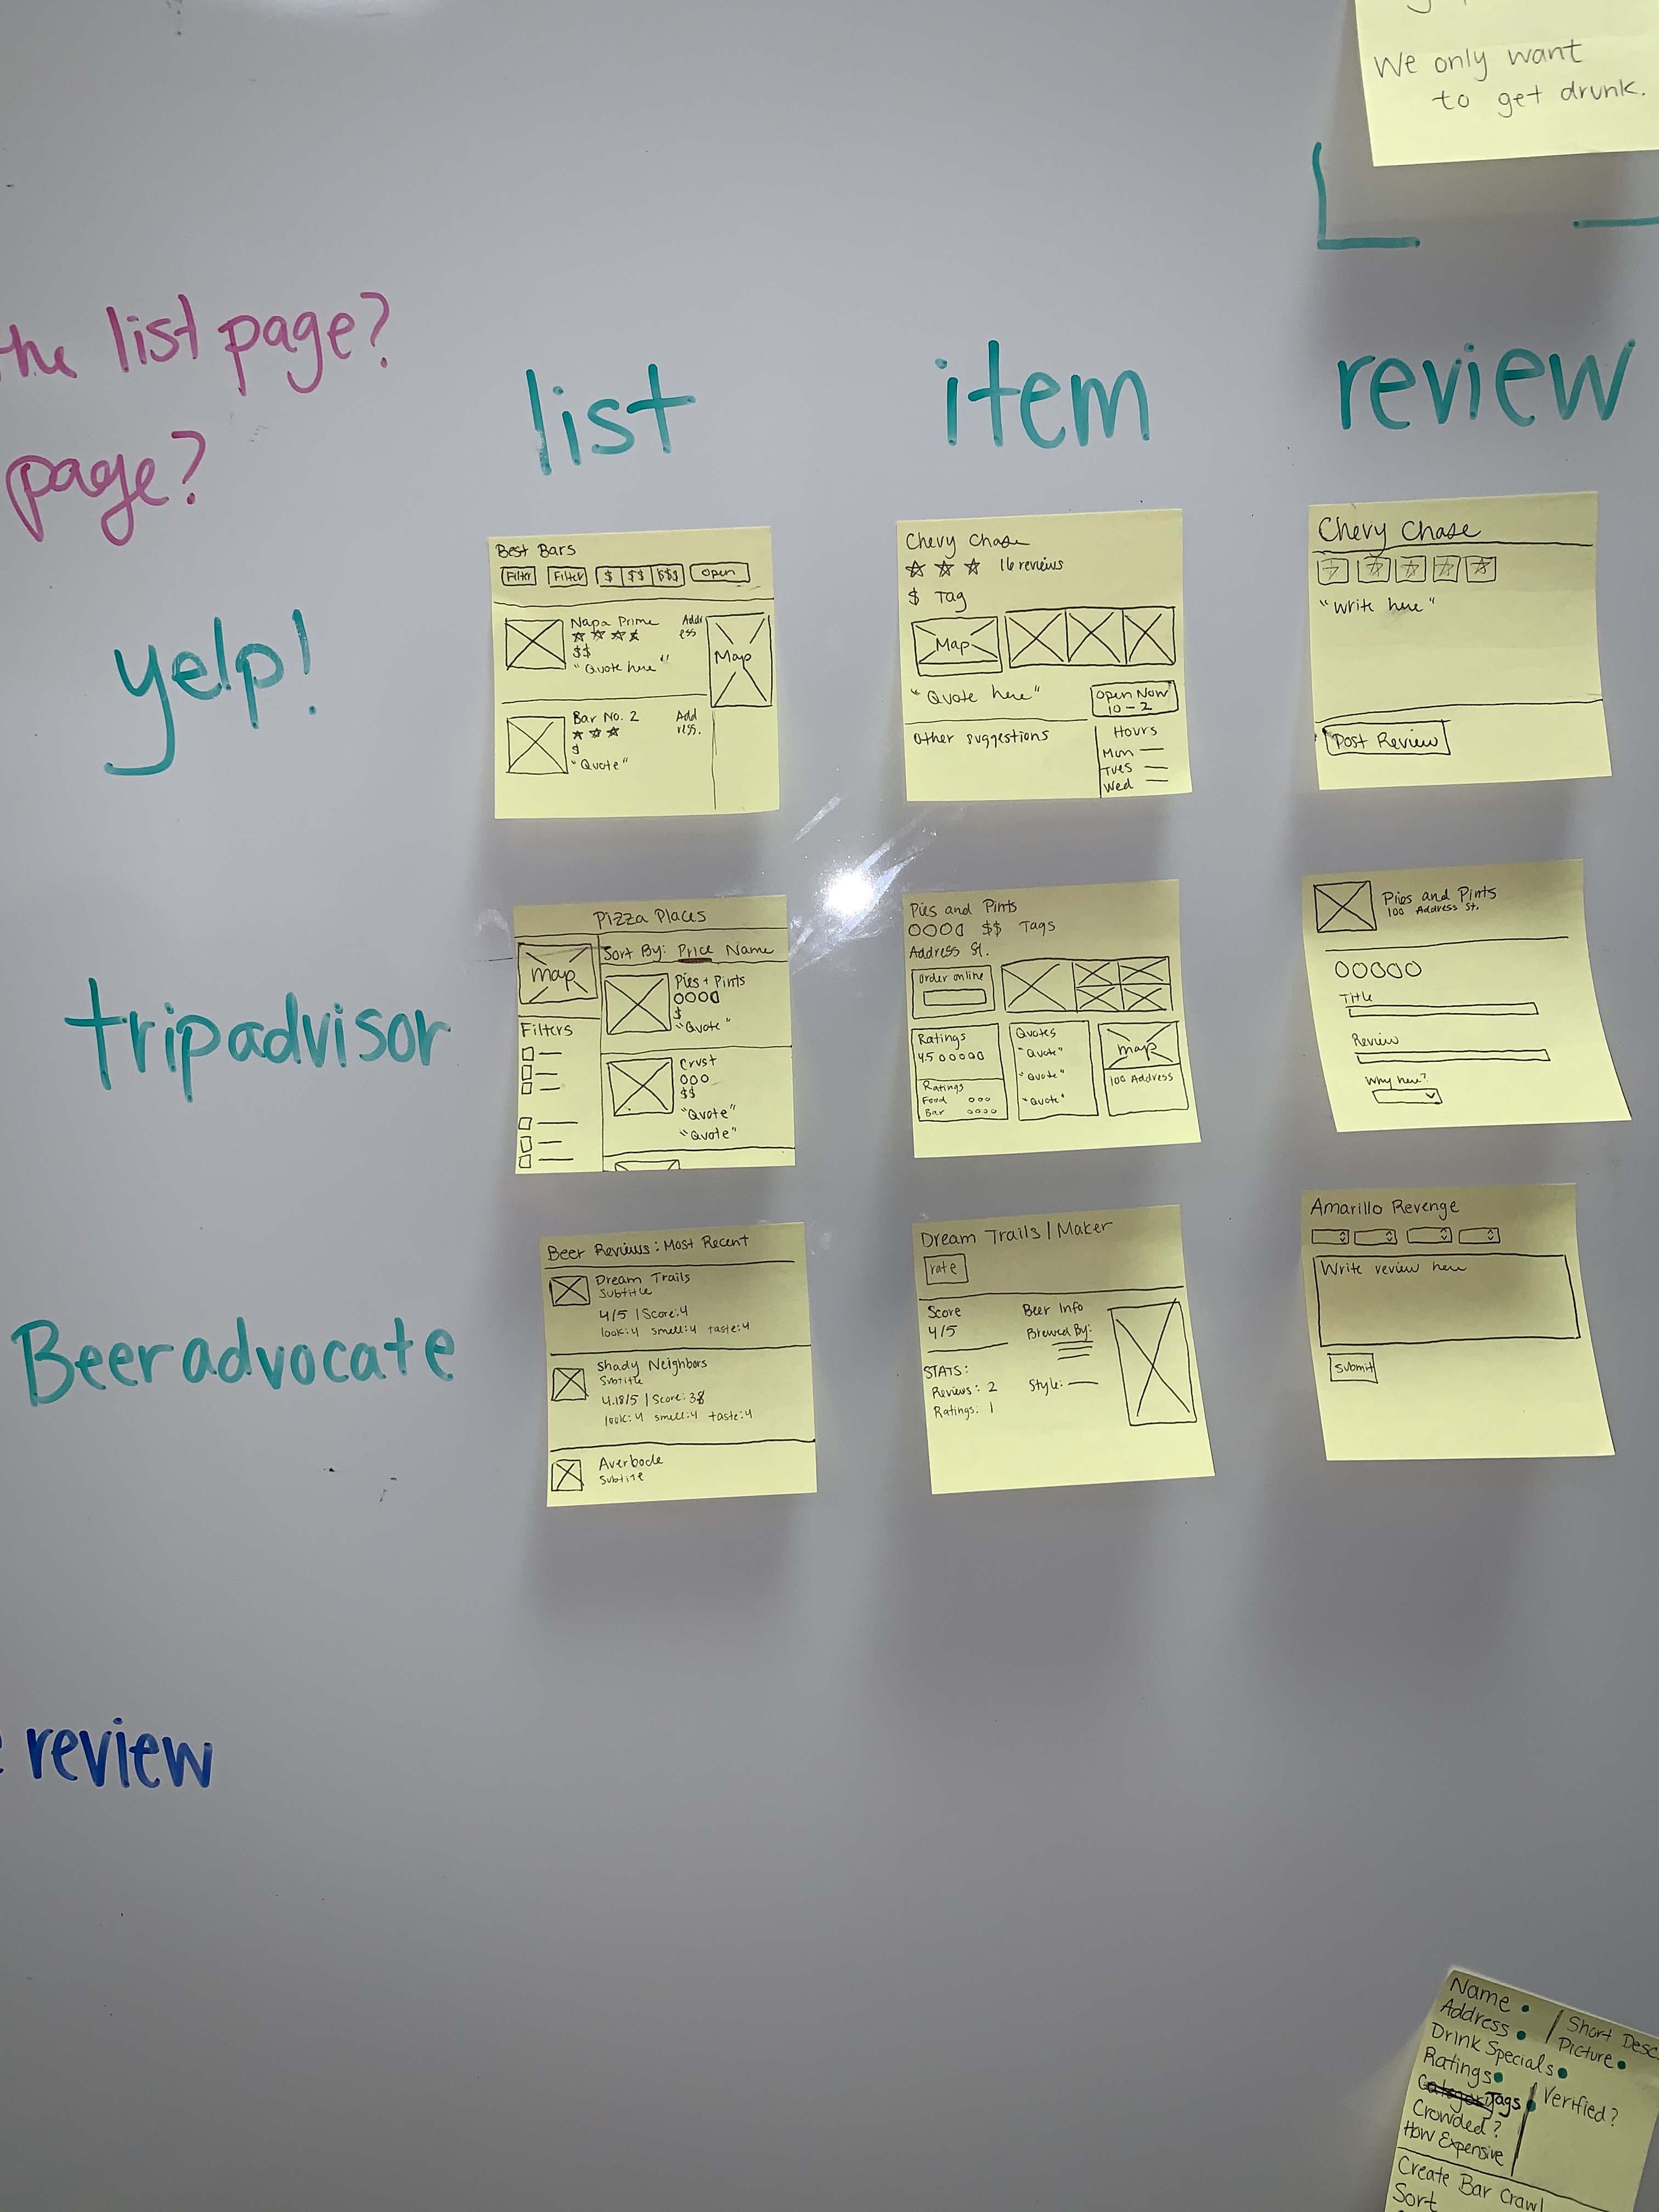 We only want
to get drunk.
the list page?
page?
list
item
review
yelp!
Best Bars
Filter Filter $ $$ $$$ Open
Napa Prime
Addr
ess
$$
"Quote here"
Map
Bar No. 2
Add
ress.
$
"Quote"
Chevy Chase
16 reviews
$ Tag
Map
"Quote here"
Open Now
10-2
Other suggestions
Hours
Mon
Tues
Wed
Chevy Chase
"Write here"
Post Review
tripadvisor
Pizza Places
Map
Sort By: Price Name
Pies + Pints
$
"Quote"
Filters
Crust
$$
"Quote"
"Quote"
Pies and Pints
$$ Tags
Address St.
order online
Ratings
4.5
Ratings
Food
Bar
Quotes
"Quote"
"Quote"
"Quote"
map
100 Address
Pies and Pints
100 Address St.
Title
Review
Why here?
Beeradvocate
Beer Reviews: Most Recent
Dream Trails
Subtitle
4/5 | Score: 4
look: 4 smell: 4 taste: 4
Shady Neighbors
Subtitle
4.18/5 | Score: 38
look: 4 smell: 4 taste: 4
Averbode
Subtitle
Dream Trails | Maker
rate
Score
4/5
STATS:
Reviews: 2
Ratings: 1
Beer Info
Brewed By:
Style:
Amarillo Revenge
Write review here
Submit
review
Name
Address
Drink Specials
Ratings
Tags
Crowded?
How Expensive
Short Desc.
Picture
Verified?
Create Bar Crawl
Sort